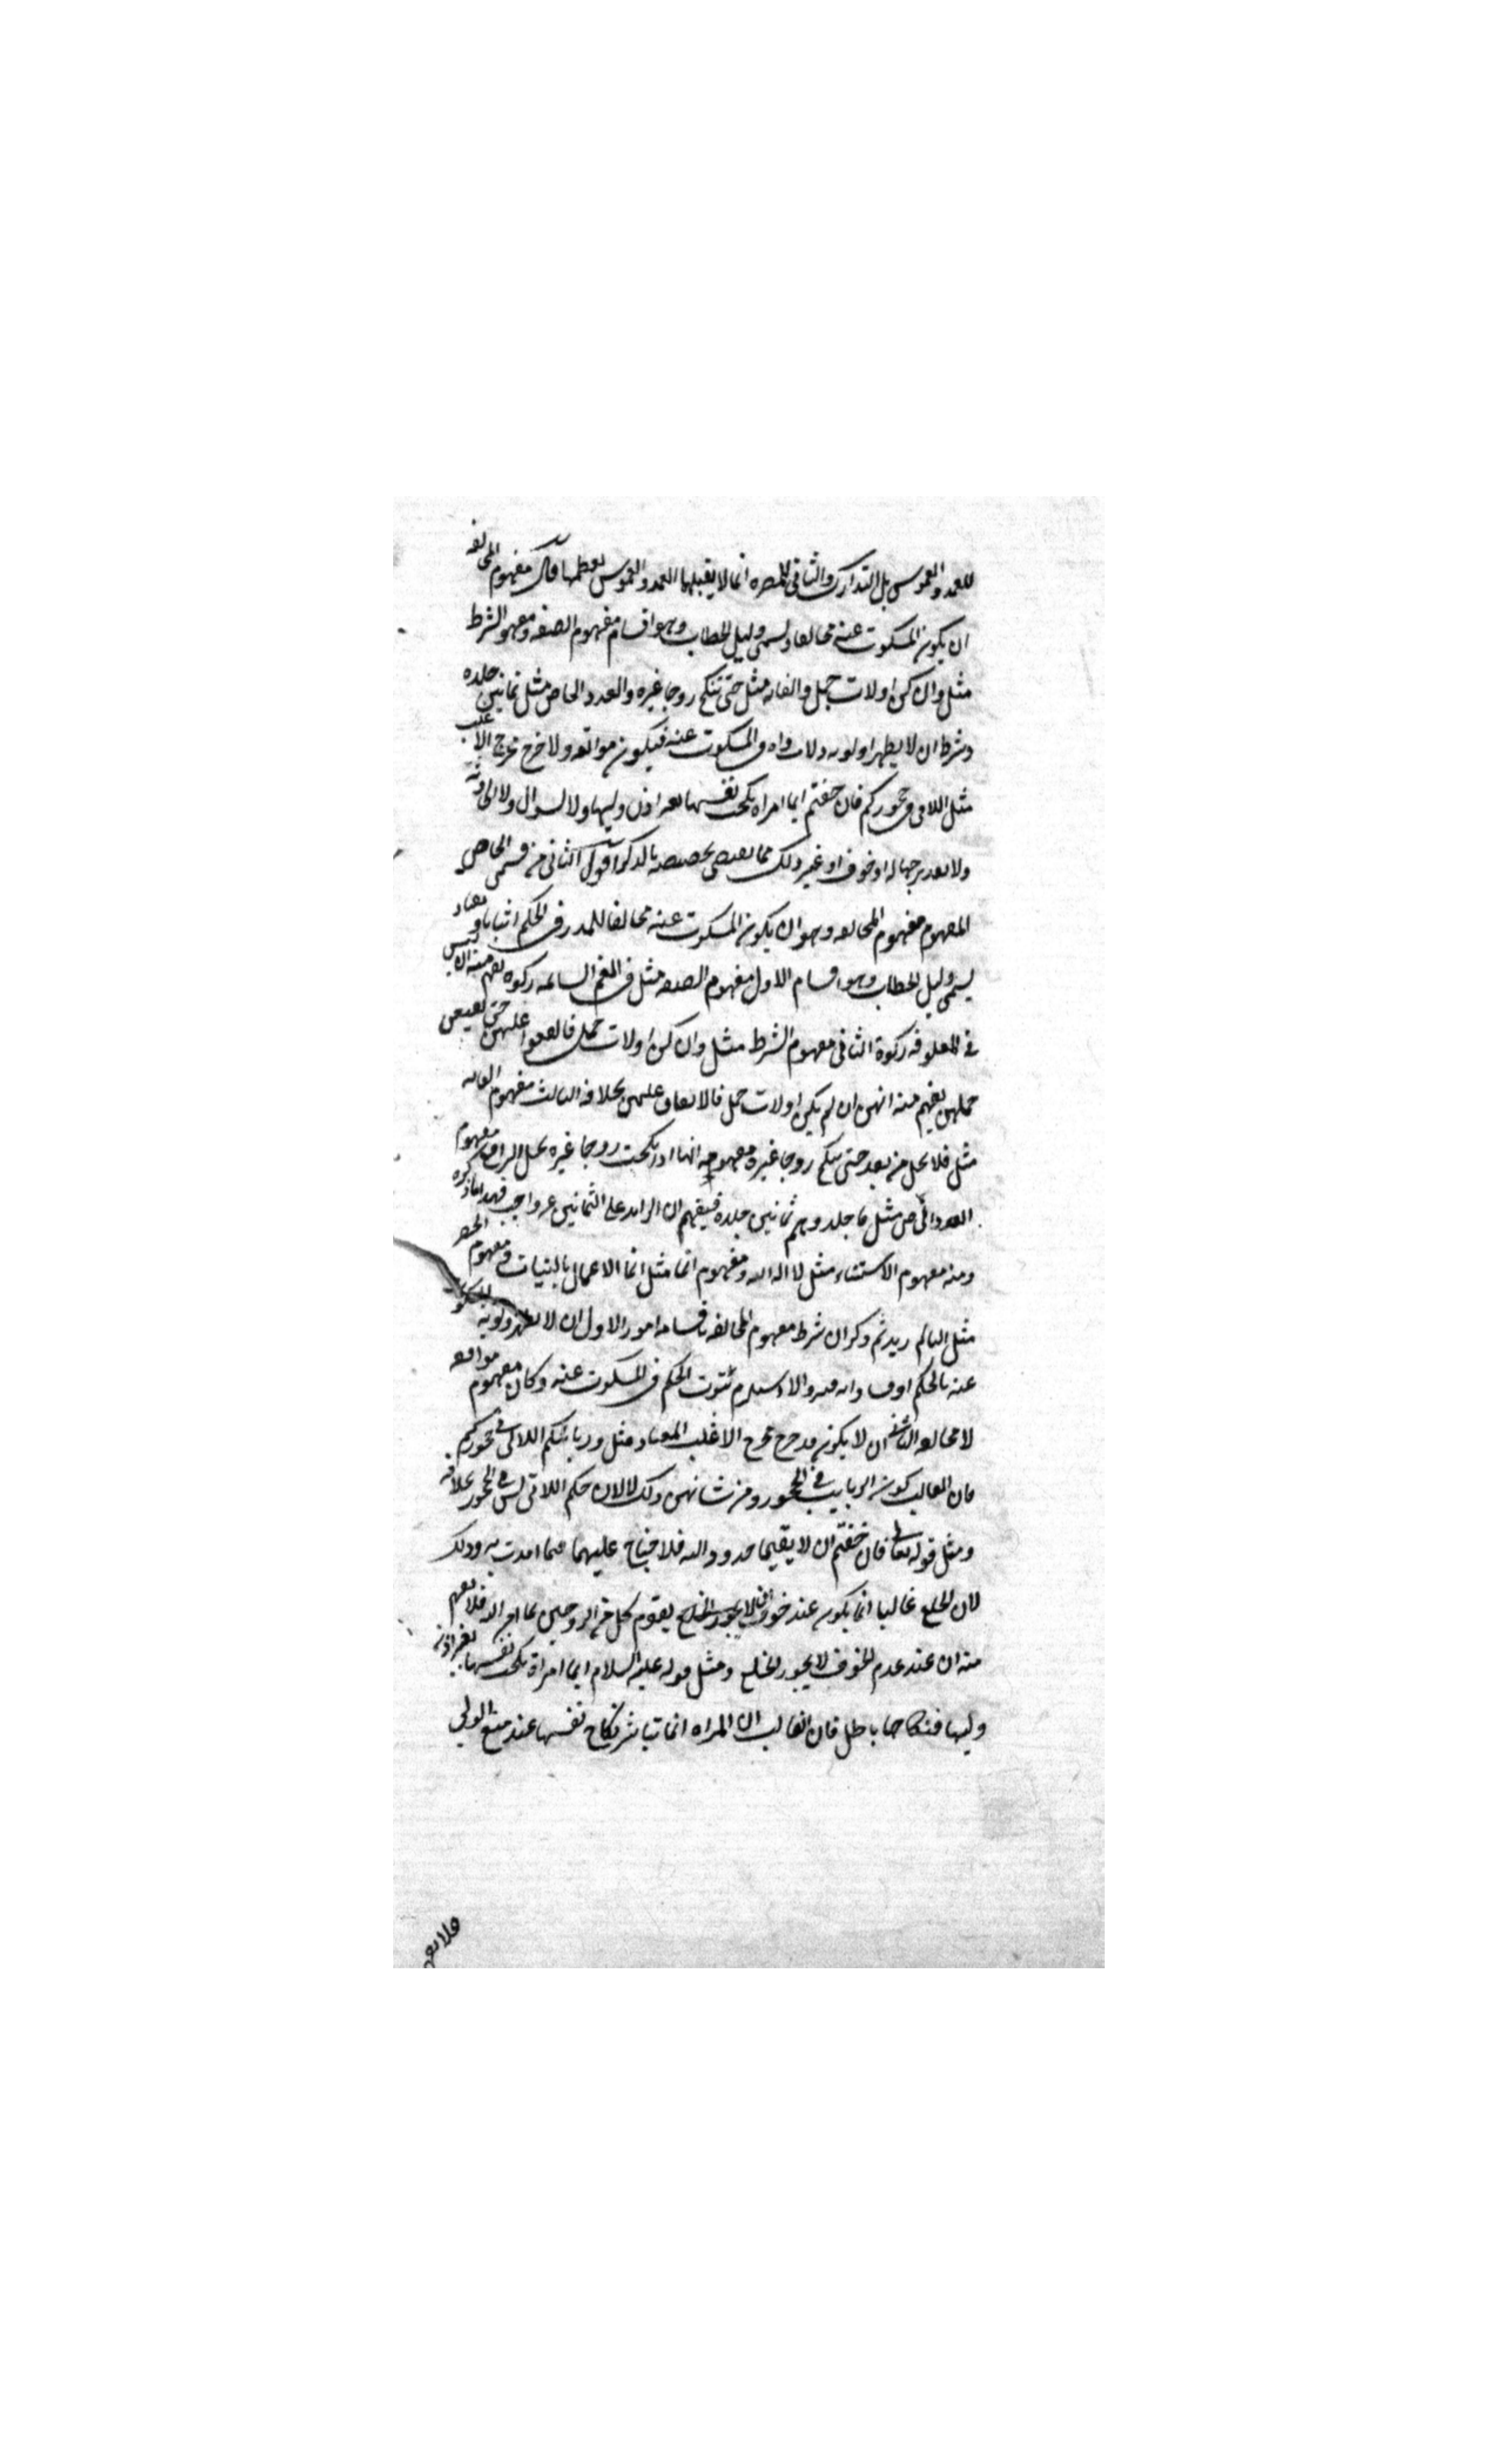 للعمد والغموس بل التدارك والثانى للمصره انما لا يقبلها العمد والغموس لعظمها قال مفهوم المخالفه
ان يكون المسكوت عنه مخالفا ويسمى دليل الخطاب وهو اقسام مفهوم الصفه ومفهوم الشرط
مثل وان كن اولات حمل والغايه مثل حتى تنكح زوجا غيره والعدد الخاص مثل ثمانين جلده
وشرطه ان لا يظهر اولويه ولا مساواه فى المسكوت عنه فيكون موافقه ولا خرج مخرج الاغلب
مثل اللاتى فى حجوركم فان خفتم ايما امراه نكحت نفسها بغير اذن وليها ولا لسوال ولا لحادثه
ولا تقدير جهاله او خوف او غير ذلك مما يقتضى تخصيصه بالذكر اقول الثانى من قسمى الخاص
المفهوم مفهوم المخالفه وهو ان يكون المسكوت عنه مخالفا للمذكور فى الحكم اثباتا ونفيا و
يسمى دليل الخطاب وهو اقسام الاول مفهوم الصفه مثل فى الغنم السائمه زكوه يفهم منه ان ليس
فى المعلوفه زكوة الثانى مفهوم الشرط مثل وان كن اولات حمل فانفقوا عليهن حتى يضعن
حملهن يفهم منه انهن ان لم يكن اولات حمل فالانفاق عليهن بخلافه الثالث مفهوم الغايه
مثل فلا تحل له من بعد حتى تنكح زوجا غيره مفهومه انها اذا نكحت زوجا غيره تحل الرابع مفهوم
العدد الخاص مثل فاجلدوهم ثمانين جلدة فيفهم ان الزايد على الثمانين غير واجب فهذا ما ذكره
ومنه مفهوم الاستثناء مثل لا اله الا الله ومفهوم انما مثل انما الاعمال بالنيات ومفهوم الحصر
مثل العالم زيد ثم ذكر ان شرط مفهوم المخالفه باقسامه امور الاول ان لا تظهر اولويه المسكوت
عنه بالحكم او مساواته فيه والا استلزم ثبوت الحكم فى المسكوت عنه وكان مفهوم موافقه
لا مخالفه الثانى ان لا يكون قد خرج مخرج الاغلب المعتاد مثل وربائبكم اللاتى فى حجوركم
فان الغالب كون الربايب فى الحجور ومن شانهن ذلك لا لان حكم اللاتى ليس فى الحجور بخلافه
ومثل قوله تعالى فان خفتم ان لا يقيما حدود الله فلا جناح عليهما فيما افتدت به وذلك
لان الخلع غالبا انما يكون عند خوف ان لا يقوم كل من الزوجين بما امر الله فلا يفهم
منه ان عند عدم الخوف لا يجوز الخلع ومثل قوله عليه السلام ايما امراة نكحت نفسها بغير اذن
وليها فنكاحها باطل فان الغالب ان المراه انما تباشر نكاح نفسها عند منع الولى
فلا يفهم